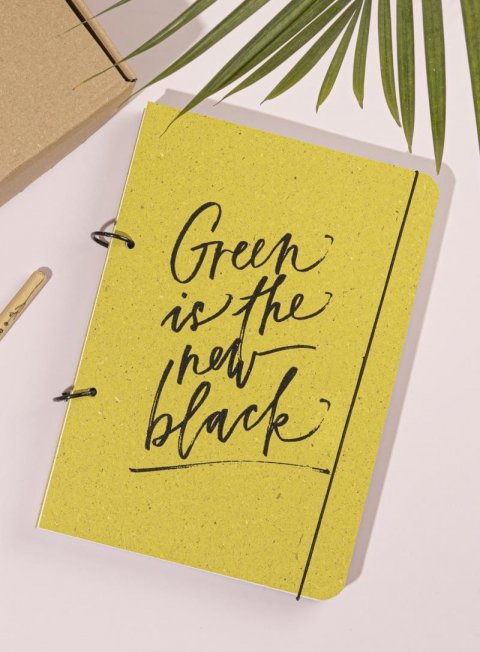 Green
is the
new
black